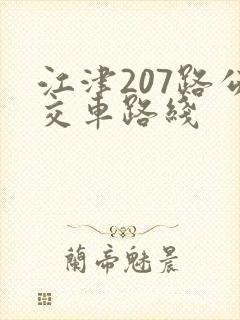 江津207路公
交车路线
蘭帝魅晨